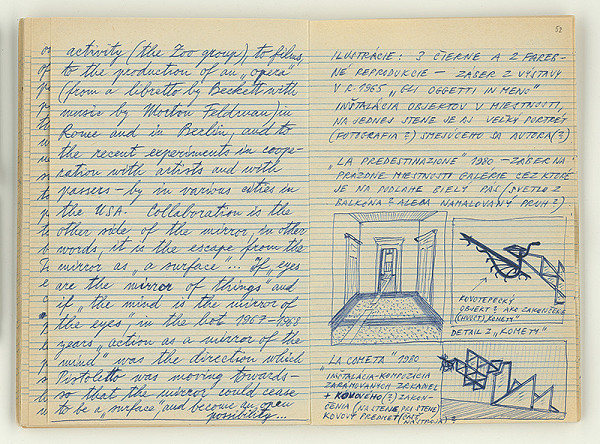 activity (the Zoo group), to films,
to the production of an „opera"
(from a libretto by Beckett with
music by Morton Feldman) in
Rome and in Berlin, and to
the recent experiments in coope-
ration with artists and with
passers-by in various cities in
the USA. Collaboration is the
other side of the mirror, in other
words, it is the escape from the
mirror as „a surface"... If „eyes
are the mirror of things" and
if „the mind is the mirror of
the eyes" in the hot 1967-1968
years „action as a mirror of the
mind" was the direction which
Pistoletto was moving towards-
so that the mirror could cease
to be a „surface" and become an open
possibility...
52
ILUSTRÁCIE: 3 ČIERNE A 2 FAREB-
NÉ REPRODUKCIE – ZÁBER Z VÝSTAVY
V R. 1965 „GLI OGGETTI IN MENO"
INŠTALÁCIA OBJEKTOV V MIESTNOSTI,
NA JEDNEJ STENE JE AJ VEĽKÝ PORTRÉT
(FOTOGRAFIA?) SMEJÚCEHO SA AUTORA(?)
„LA PREDESTINAZIONE" 1980 – ZÁBER NA
PRÁZDNE MIESTNOSTI GALÉRIE CEZ KTORÉ
JE NA PODLAHE BIELY PÁS (SVETLO Z
BALKÓNA? ALEBO NAMAĽOVANÝ PRUH?)
KOVOTEPECKÝ
OBJEKT? AKO ZAKONČENIE
(CHVOST) KOMÉTY
DETAIL Z „KOMÉTY"
„LA COMETA" 1980
INŠTALÁCIA-KOMPOZÍCIA
ZARÁMOVANÝCH ZRKADIEL
+ KOVOVÉHO(?) ZAKON-
ČENIA (NA STENE, PRI STENE)
KOVOVÝ PREDMET (
NÁSTROJA)?